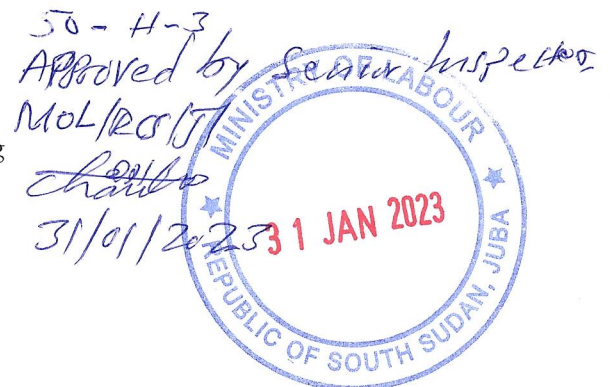 50 - H-3
Approved by Senior Inspector
MOL/RSS/J
31/01/2023
MINISTRY OF LABOUR
31 JAN 2023
REPUBLIC OF SOUTH SUDAN, JUBA
g